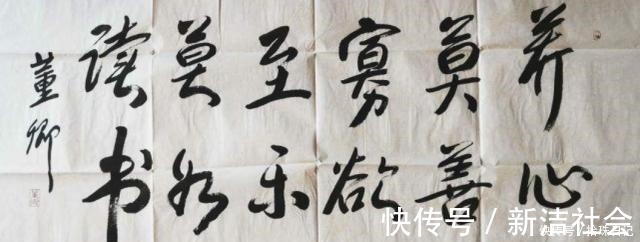 养心
莫善
寡欲
至乐
莫如
读书
董卿
快传号 / 新洁社会